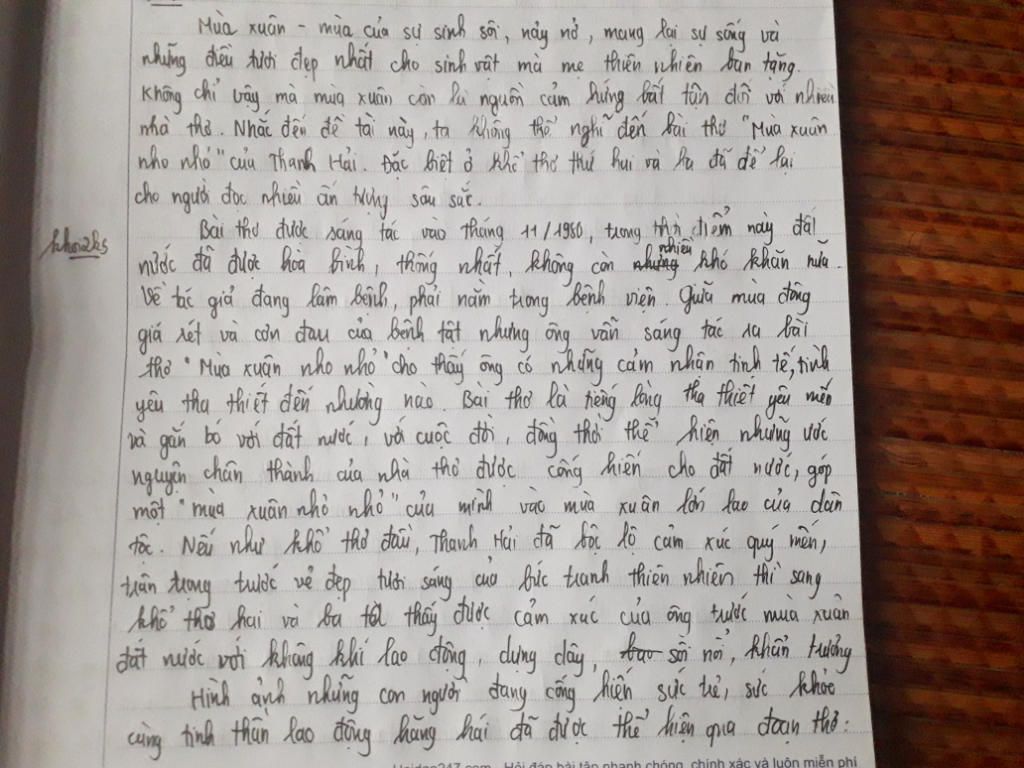 Mùa xuân - mùa của sự sinh sôi, nảy nở, mang lại sự sống và
những điều tươi đẹp nhất cho sinh vật mà mẹ thiên nhiên ban tặng.
Không chỉ vậy mà mùa xuân còn là nguồn cảm hứng bất tận đối với nhiều
nhà thơ. Nhắc đến đề tài này, ta không thể nghĩ đến bài thơ "Mùa xuân
nho nhỏ" của Thanh Hải. Đặc biệt ở khổ thơ thứ hai và ba đã để lại
cho người đọc nhiều ấn tượng sâu sắc.
Bài thơ được sáng tác vào tháng 11/1980, trong thời điểm này đất
khoi2k5
nước đã được hòa bình, thống nhất, không còn nhiều khó khăn nữa.
Về tác giả đang lâm bệnh, phải nằm trong bệnh viện. Giữa mùa đông
giá rét và cơn đau của bệnh tật nhưng ông vẫn sáng tác ra bài
thơ "Mùa xuân nho nhỏ" cho thấy ông có những cảm nhận tinh tế, tình
yêu tha thiết đến nhường nào. Bài thơ là tiếng lòng tha thiết yêu mến
và gắn bó với đất nước, với cuộc đời, đồng thời thể hiện những ước
nguyện chân thành của nhà thơ được cống hiến cho đất nước, góp
một "mùa xuân nhỏ nhỏ" của mình vào mùa xuân lớn lao của dân
tộc. Nếu như khổ thơ đầu, Thanh Hải đã bộc lộ cảm xúc quý mến,
trân trọng trước vẻ đẹp tươi sáng của bức tranh thiên nhiên thì sang
khổ thơ hai và ba ta thấy được cảm xúc của ông trước mùa xuân
đất nước với không khí lao động, dựng xây, sôi nổi, khẩn trương
Hình ảnh những con người đang cống hiến sức trẻ, sức khỏe
cùng tinh thần lao động hăng hái đã được thể hiện qua đoạn thơ:
Hoidap247.com - Hỏi đáp bài tập nhanh chóng, chính xác và luôn miễn phí